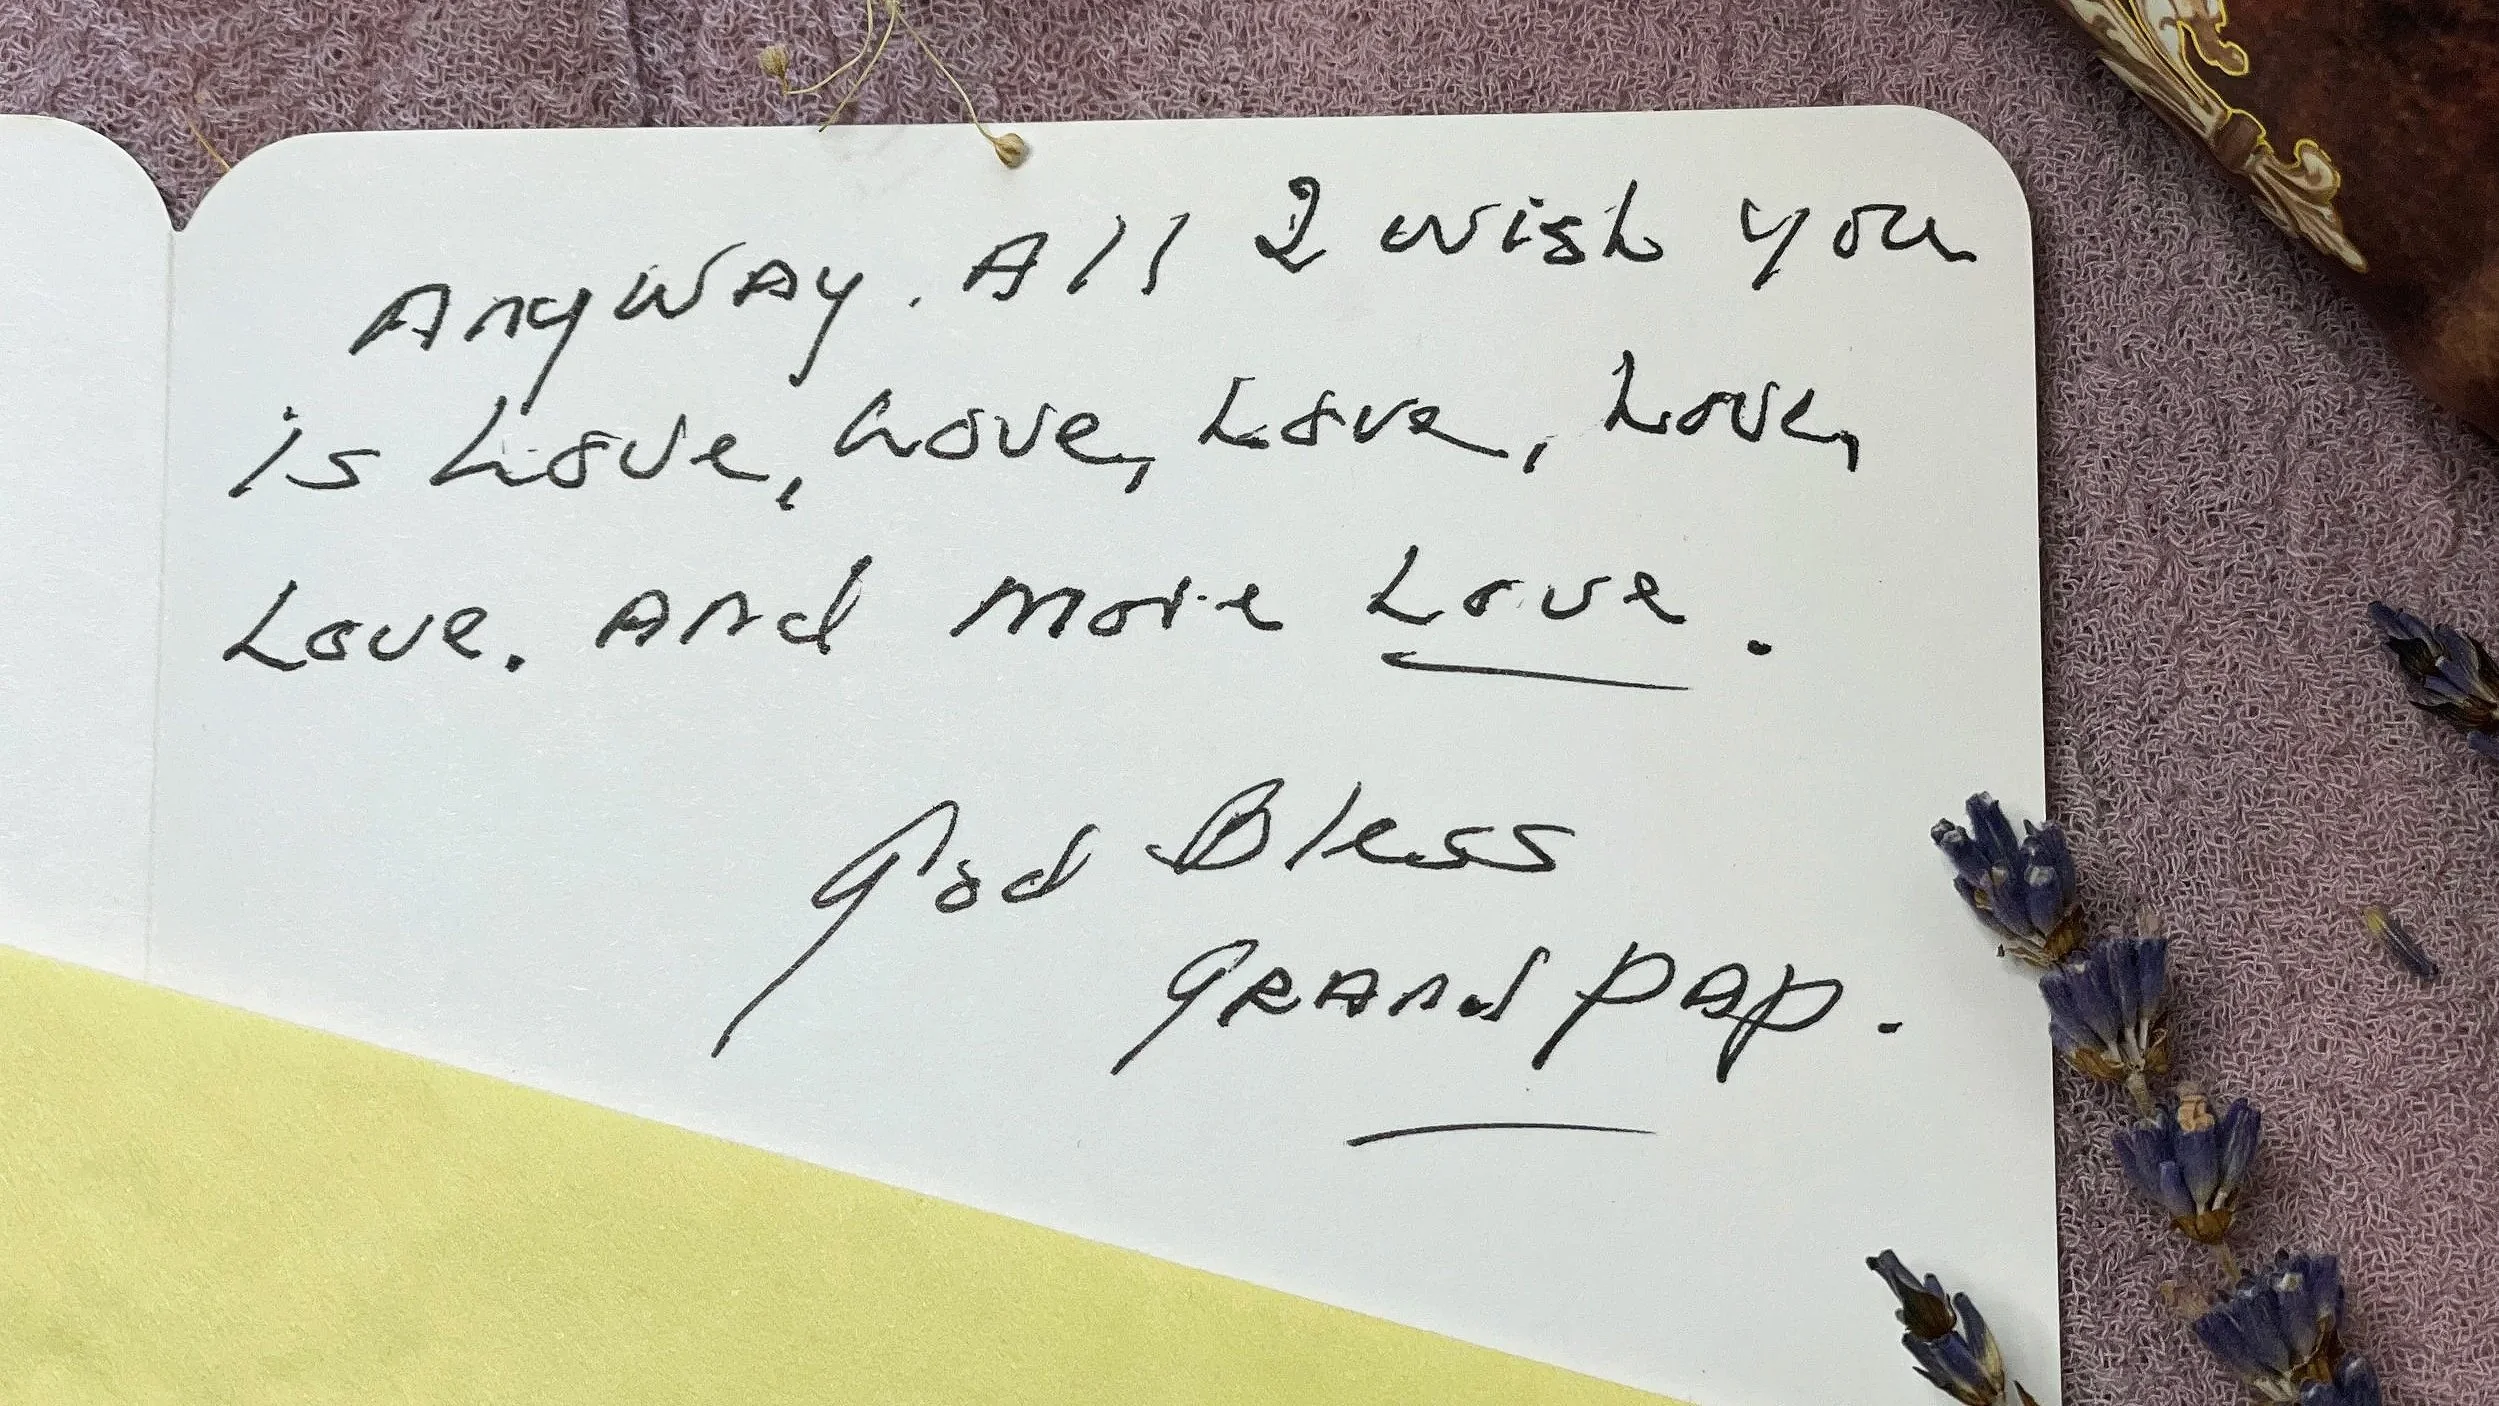 Anyway. All I wish you
is Love, Love, Love, Love,
Love. And more Love.
God Bless
Grand pap.